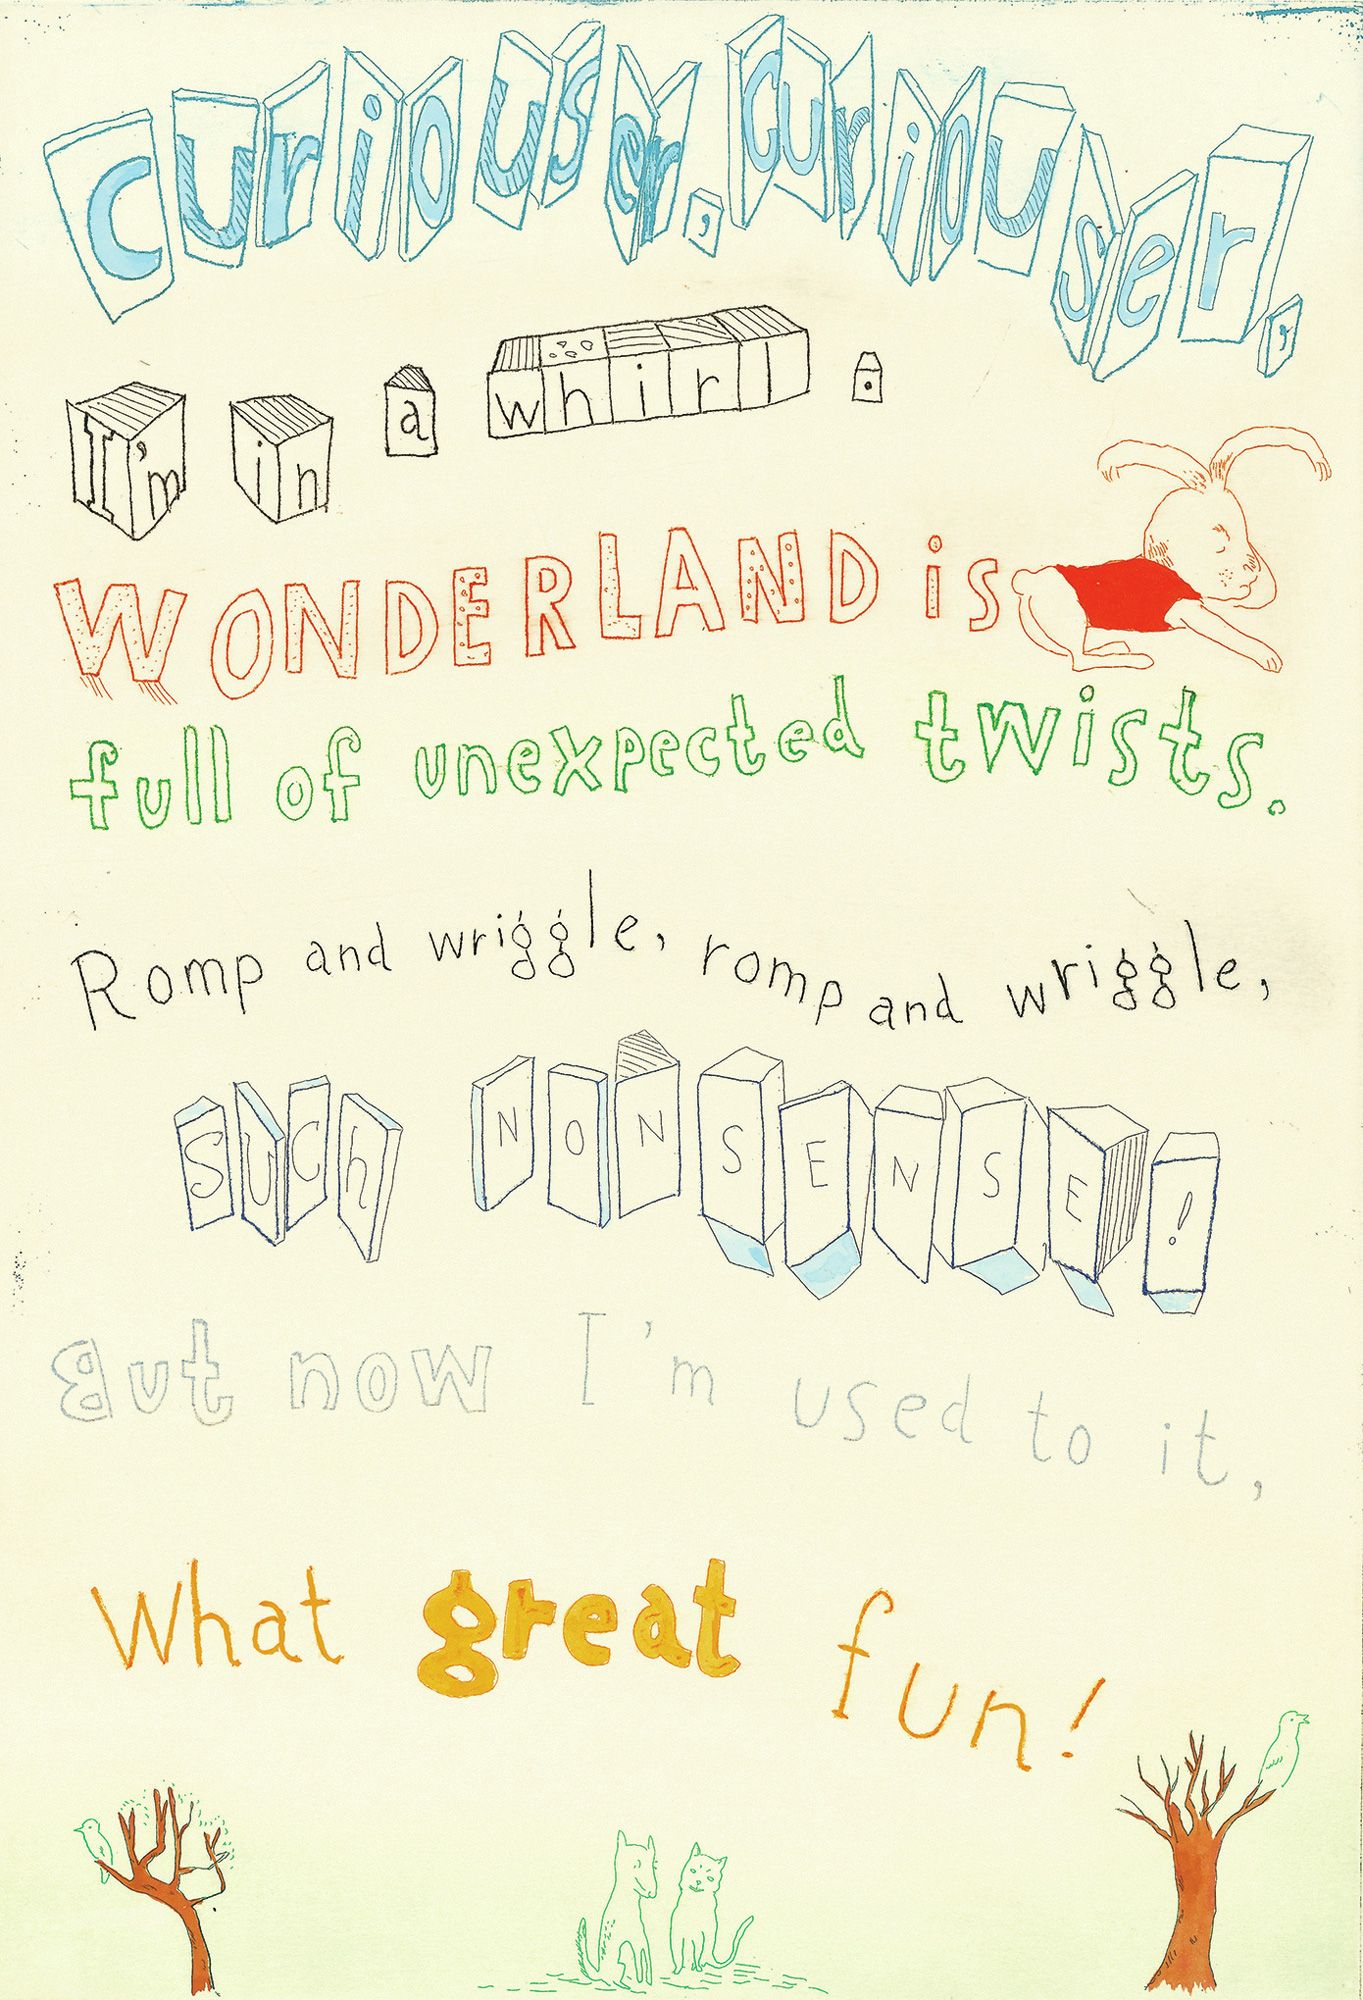 Curiouser, curiouser,
I'm in a whirl.
WONDERLAND is
full of unexpected twists.
Romp and wriggle, romp and wriggle,
Such NONSENSE!
But now I'm used to it,
What great fun!